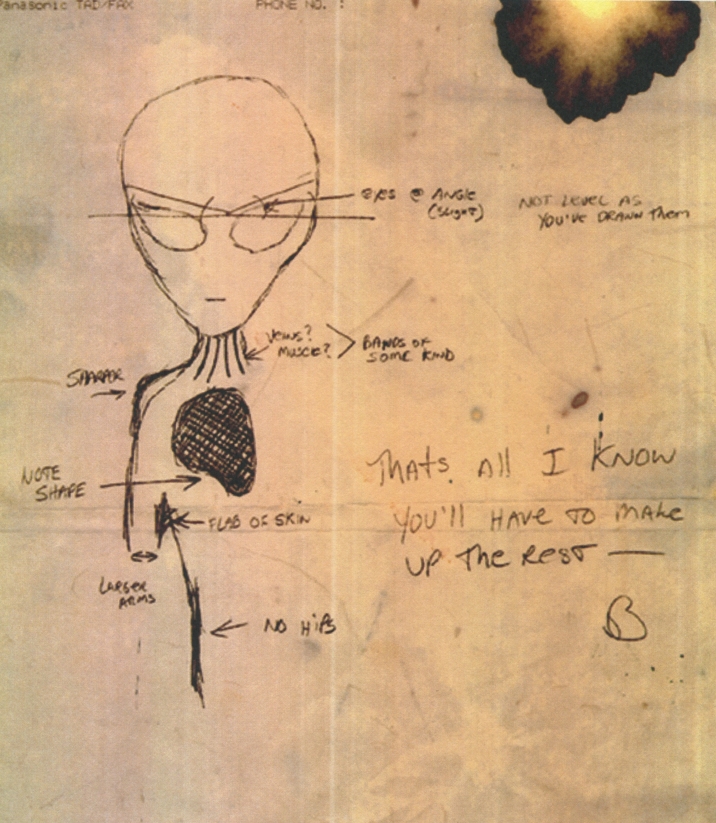 Panasonic TAD/FAX PHONE NO. :
EYES @ ANGLE
(Slight)
NOT LEVEL AS
YOU'VE DRAWN Them
VEINS?
MUSCLE?
BANDS OF
SOME KIND
SHARPER
NOTE
SHAPE
FLAB OF SKIN
LARGER
ARMS
NO HIPS
Thats all I KNOW
YOU'll HAVE TO MAKE
UP The REST —
B